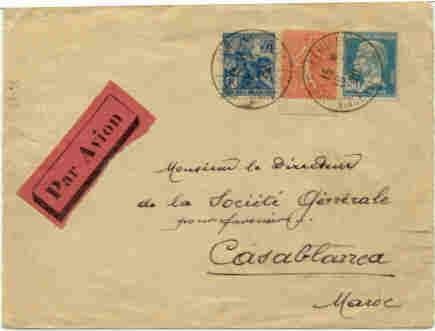 Par Avion
Monsieur le Directeur
de la Société Générale
Casablanca
Maroc